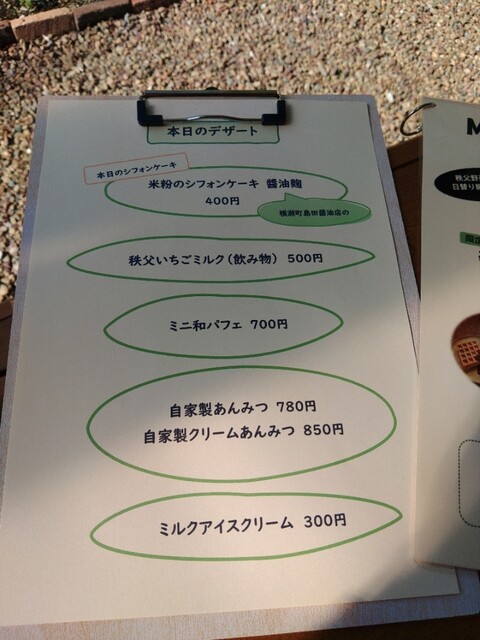 本日のデザート
本日のシフォンケーキ
米粉のシフォンケーキ 醤油麹
400円
横瀬町島田醤油店の
秩父いちごミルク(飲み物) 500円
ミニ和パフェ 700円
自家製あんみつ 780円
自家製クリームあんみつ 850円
ミルクアイスクリーム 300円
M
秩父野
日替り